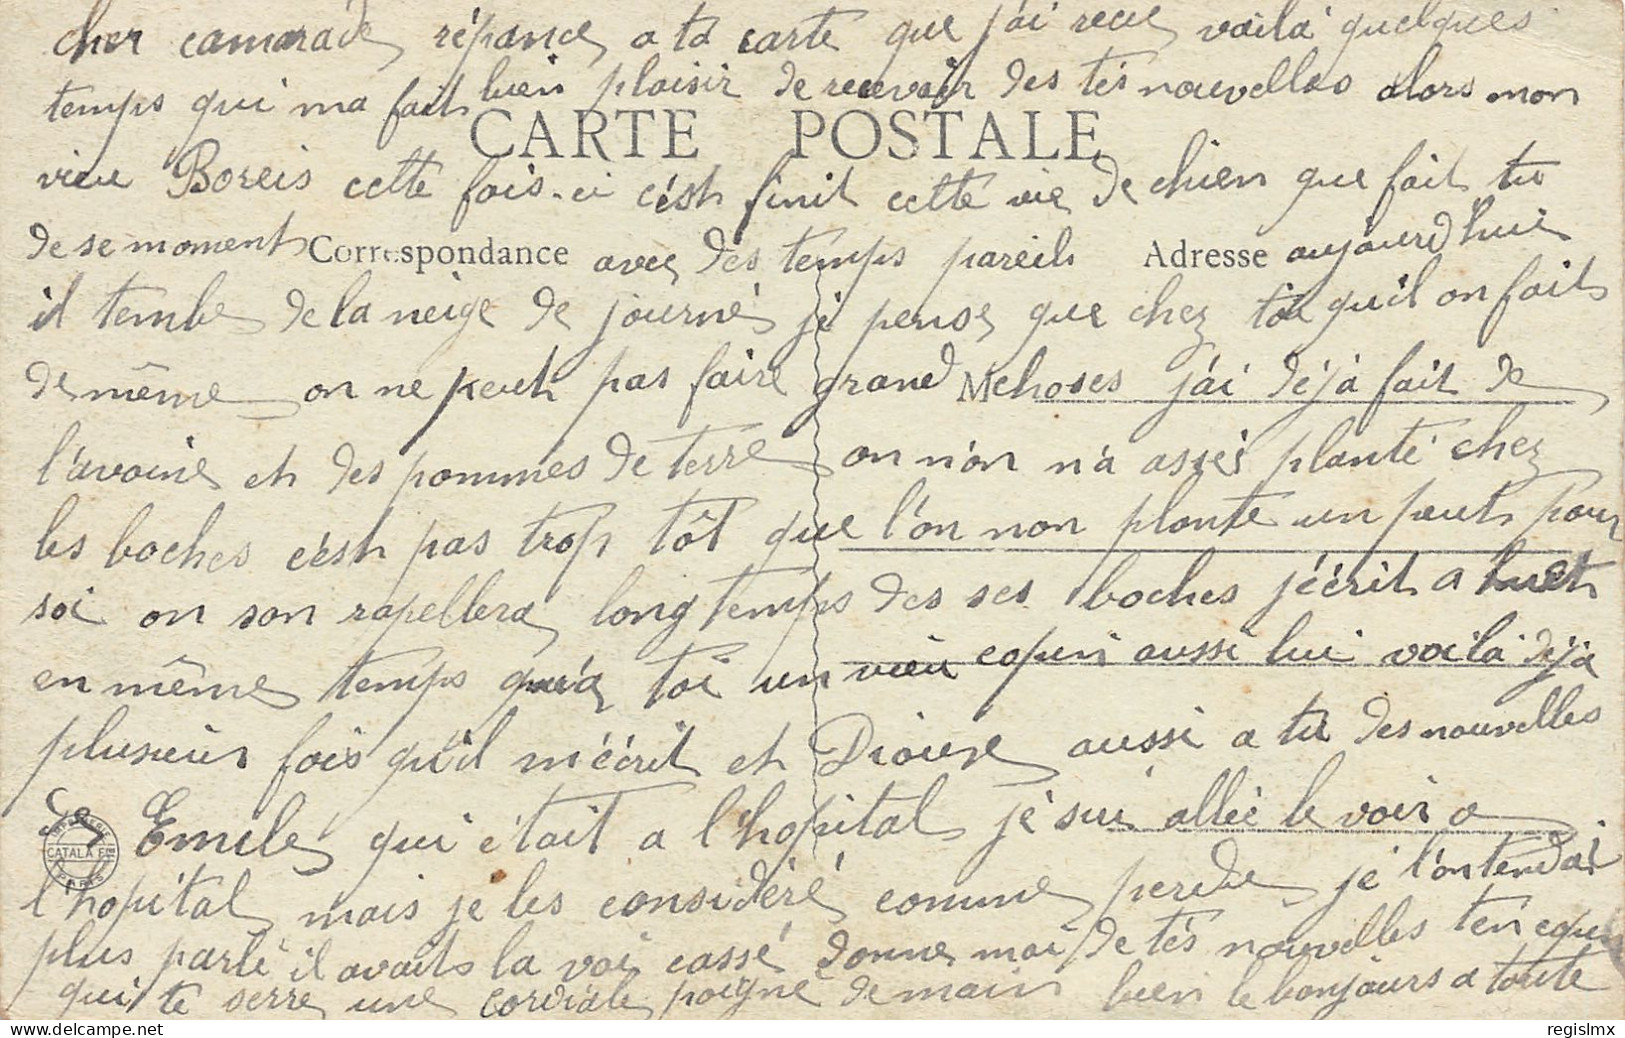 cher camarade réponce a ta carte que j'ai recue voila quelques
temps qui ma fait bien plaisir de recevoir des tés nouvelles alors mon
CARTE POSTALE
vieu Boreis cette fois-ci c'est finit cette vie de chien que fait tu
de se moment avec des temps pareils aujourd'hui
Correspondance Adresse
il tembe de la neige de journé je pense que chez toi qu'il on fait
de même on ne peut pas faire grand choses j'ai déjà fait de
M
l'avoine et des pommes de terre on n'on n'a assés planté chez
les boches c'est pas trop tôt que l'on non plante un peut pour
soi on son rapellera longtemps des ses boches j'écrit a huet
en même temps qu'a toi un vieu copin aussi lui voila déjà
plusieur fois qu'il m'écrit et Diouse aussi a tu des nouvelles
d' Emile qui était a l'hopital je sui allée le voir a
IMPRIMERIE CATALA FRES PARIS
l'hopital mais je les considéré comme perdue je l'entendai
plus parlé il avaits la voi cassé donne moi de tés nouvelles
qui te serre une cordiale poigné de main bien le bonjours a toute
delcampe.net
regislmx